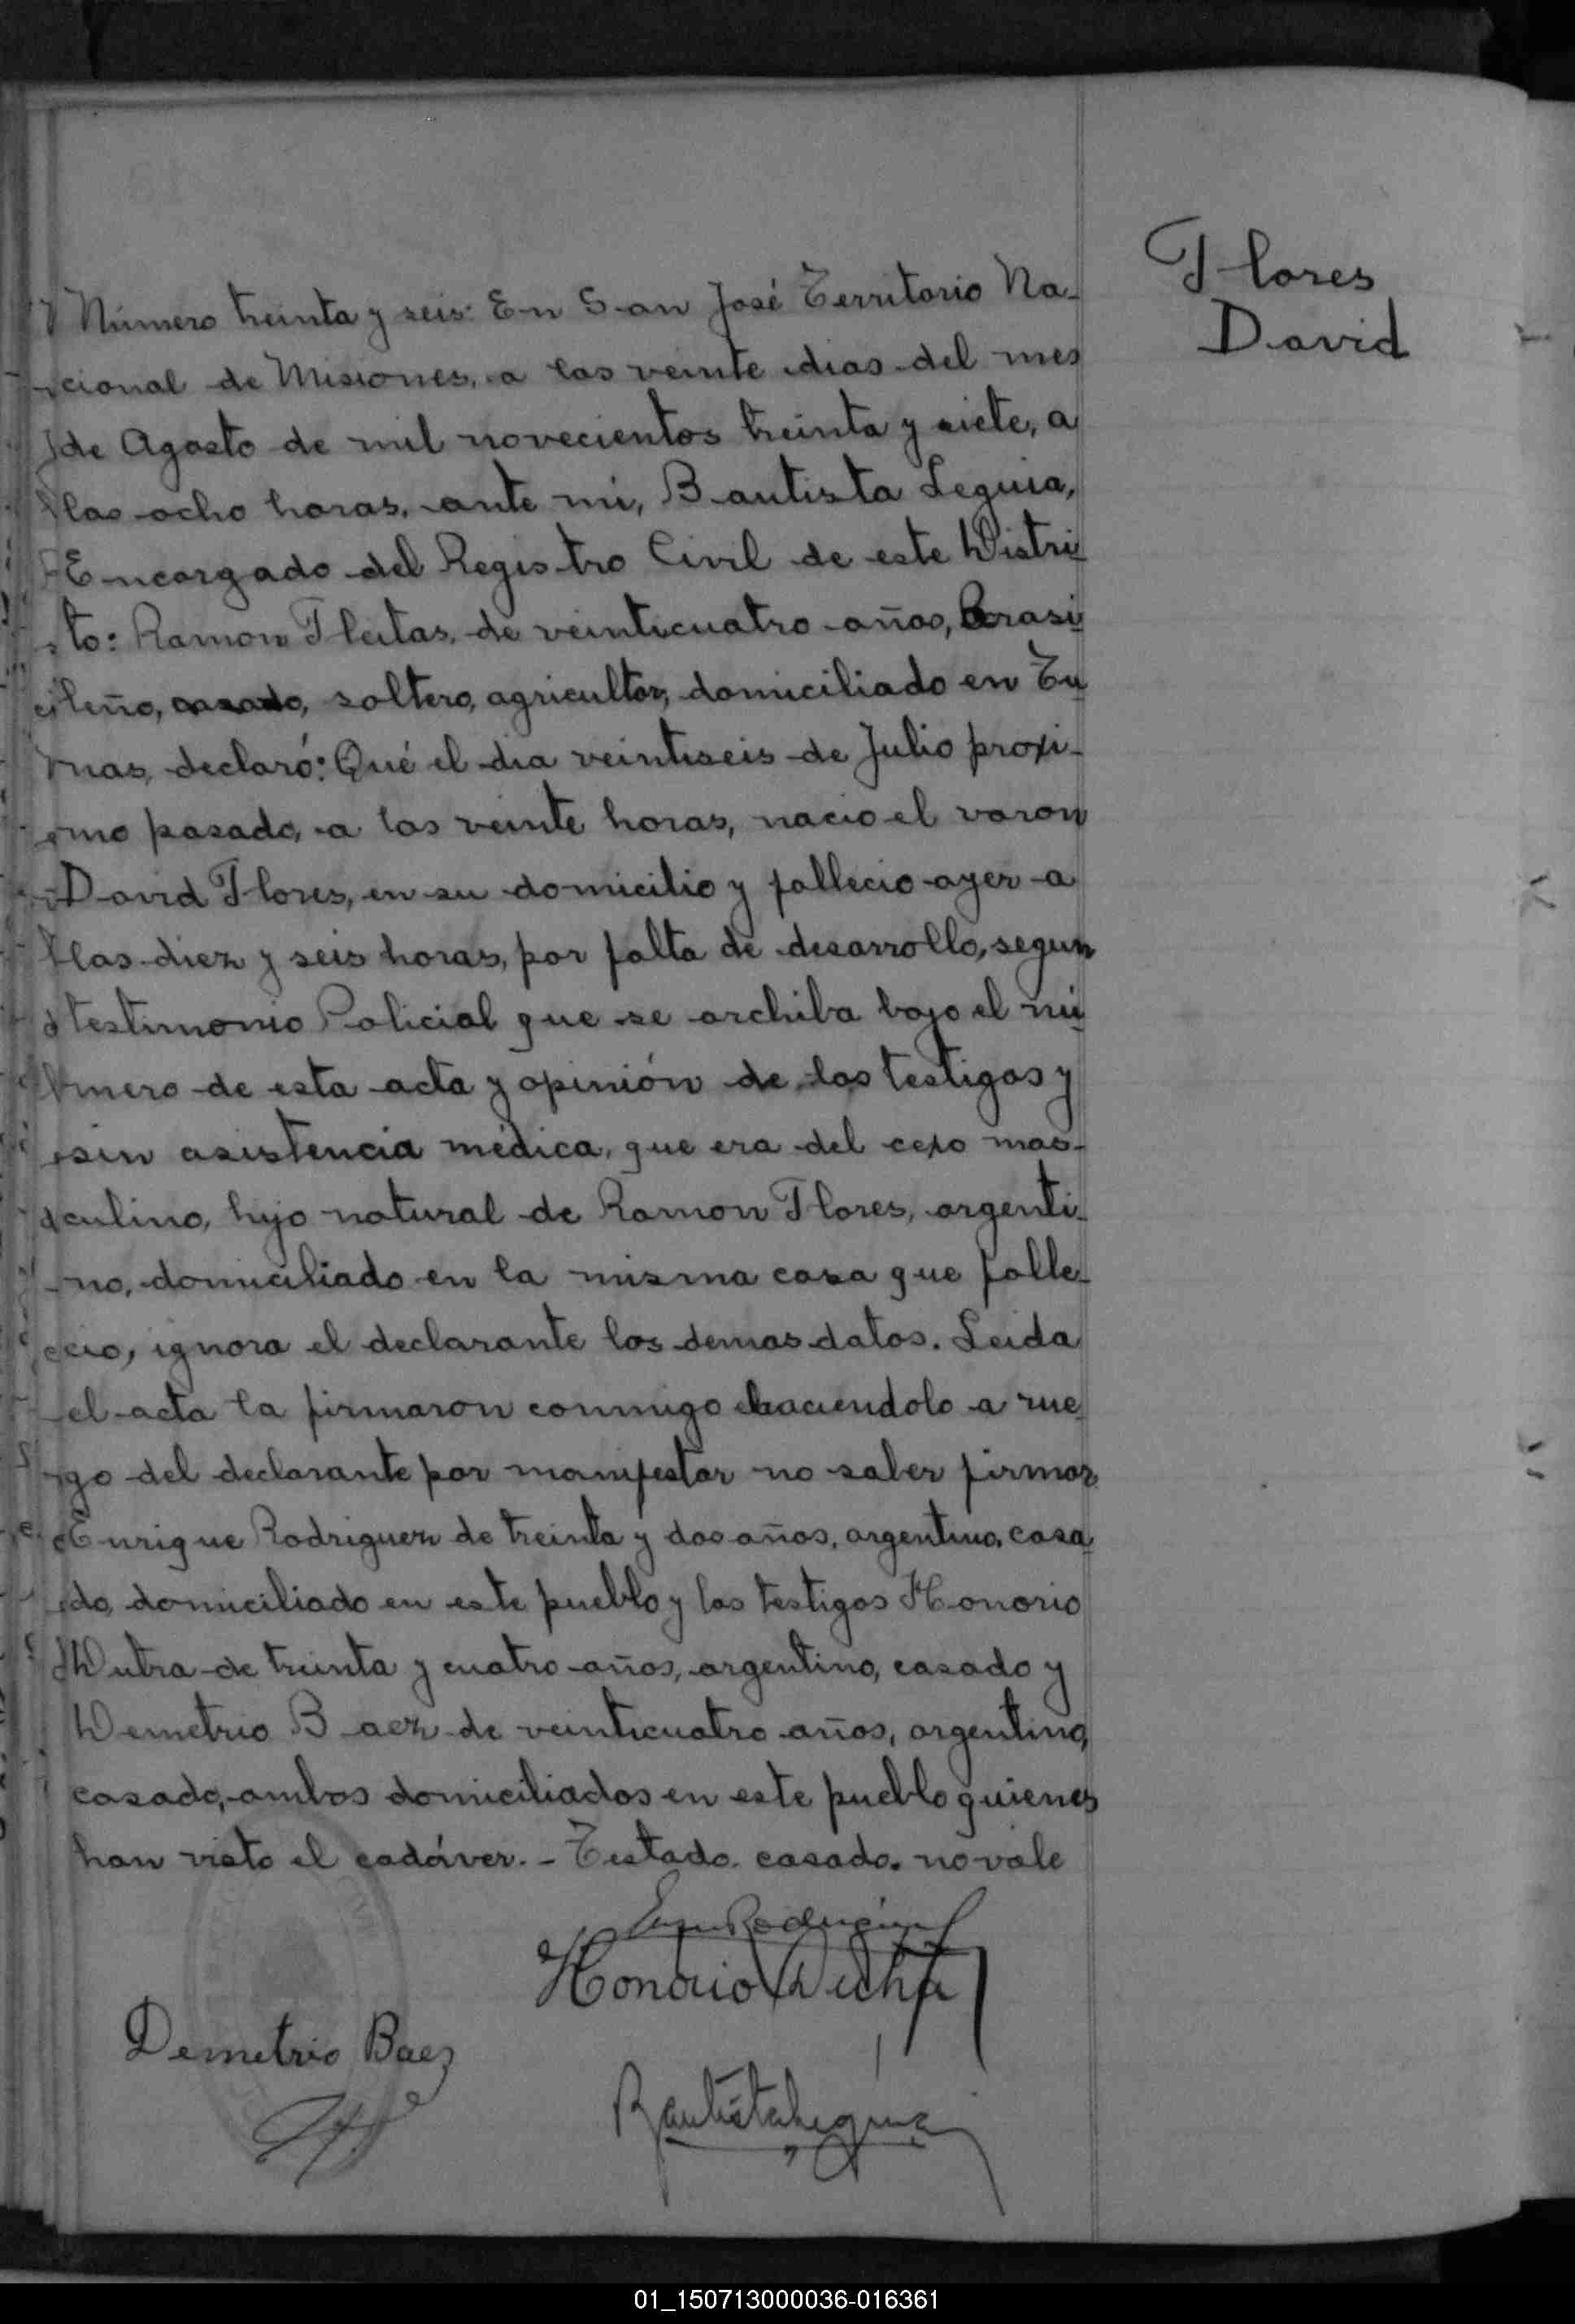 Flores
David
Número treinta y seis: En San José Territorio Na-
cional de Misiones, a los veinte dias del mes
de Agosto de mil novecientos treinta y siete, a
las ocho horas, ante mi, Bautista Leguia,
Encargado del Registro Civil de este Distri
to: Ramon Fleitas, de veinticuatro años, Brasi
leño, casado, soltero, agricultor, domiciliado en Tu
nas, declaró: Qué el dia veintiseis de Julio proxi-
mo pasado, a las veinte horas, nacio el varon
David Flores, en su domicilio y fallecio ayer a
las diez y seis horas, por falta de desarrollo, segun
testimonio Policial que se archiba bajo el nú
mero de esta acta y opinión de los testigos y
sin asistencia médica, que era del cexo mas-
culino, hijo natural de Ramon Flores, argenti-
no, domiciliado en la misma casa que falle-
cio, ignora el declarante los demas datos. Leida
el acta la firmaron conmigo haciendolo a rue
go del declarante por manifestar no saber firmar
Enrique Rodriguez de treinta y dos años, argentino, casa
do, domiciliado en este pueblo y los testigos Honorio
Dutra de treinta y cuatro años, argentino, casado y
Demetrio Baez de veinticuatro años, argentino,
casado, ambos domiciliados en este pueblo quienes
han visto el cadáver. - Testado. casado. no vale
Honorio Dutra
Demetrio Baez
Bautista Leguia
01_150713000036-016361